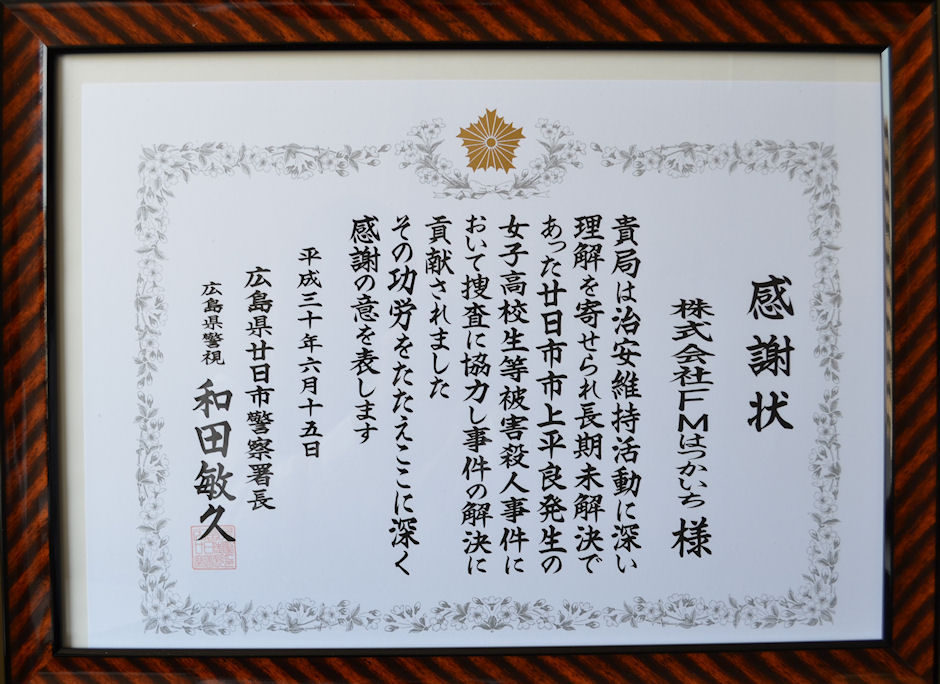 感謝状
株式会社FMはつかいち 様
貴局は治安維持活動に深い
理解を寄せられ長期未解決で
あった廿日市市上平良発生の
女子高校生等被害殺人事件に
おいて捜査に協力し事件の解決に
貢献されました
その功労をたたえここに深く
感謝の意を表します
平成三十年六月十五日
広島県廿日市警察署長
広島県警視 和田敏久